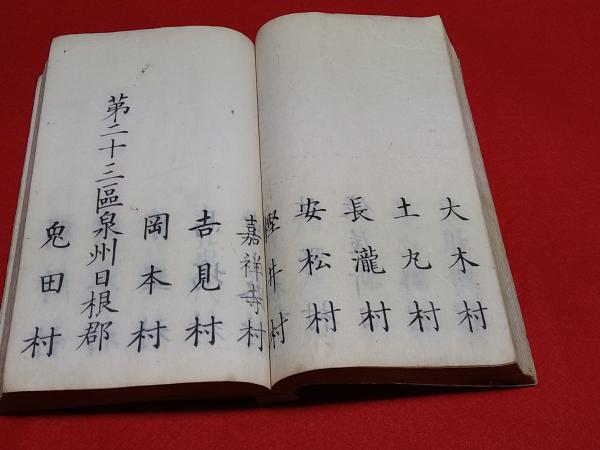 大木村
土丸村
長瀧村
安松村
樫井村
嘉祥寺村
吉見村
岡本村
第二十三區泉州日根郡
兎田村